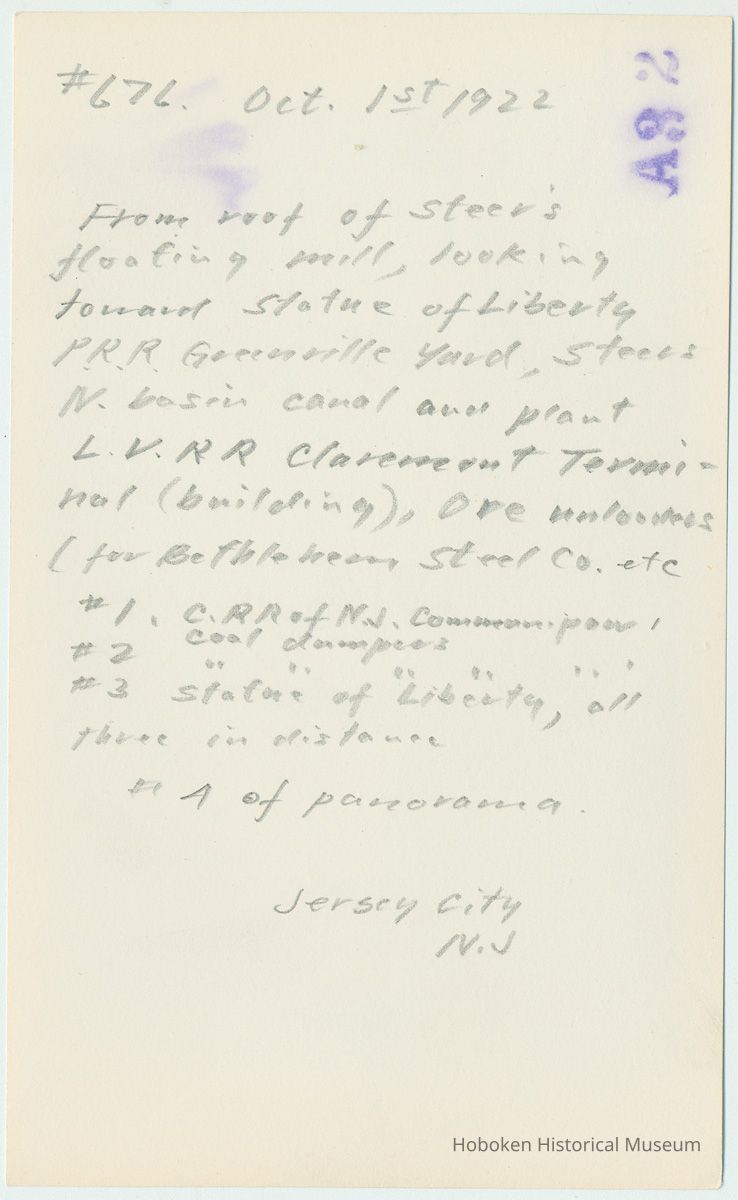 #676. Oct. 1st 1922
A82
From roof of Steer's
floating mill, looking
toward Statue of Liberty
P.R.R. Greenville Yard, Steers
N. basin canal and plant
L.V.RR Claremont Termi-
nal (building), Ore unloaders
(for Bethlehem Steel Co. etc
#1. C.RR of N.J. Communipaw,
coal dumpers
#2 " " " " " "
#3 Statue of Liberty, all
three in distance
#4 of panorama.
Jersey City
N.J
Hoboken Historical Museum